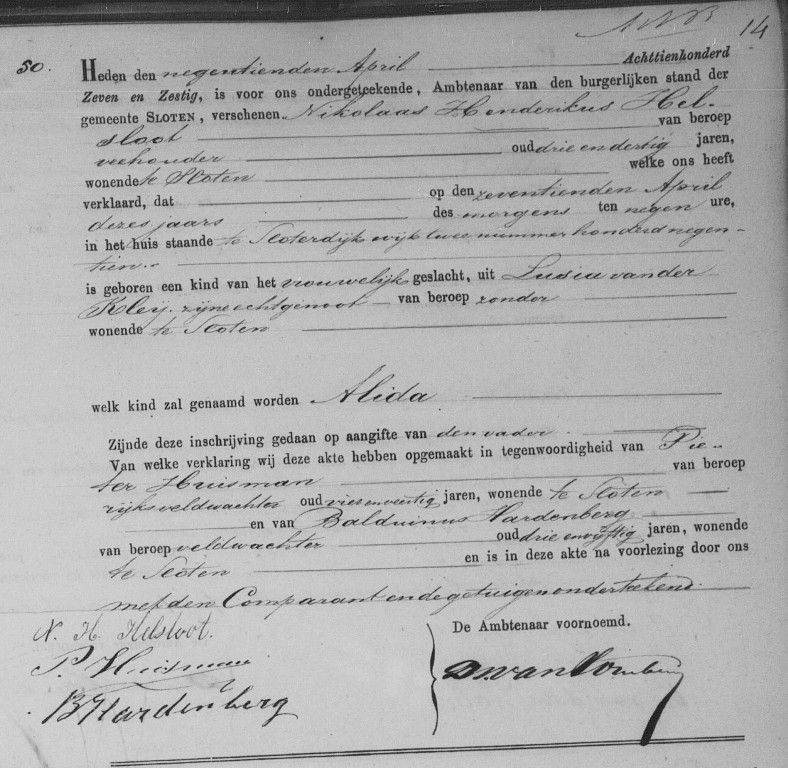 14
50.
Heden den negentienden April Achttienhonderd
Zeven en Zestig, is voor ons ondergeteekende, Ambtenaar van den burgerlijken stand der
gemeente SLOTEN, verschenen Nikolaas Henderikus Hel-
sloot van beroep
veehouder oud drie en dertig jaren,
wonende te Sloten welke ons heeft
verklaard, dat op den zeventienden April
dezes jaars des morgens ten negen ure,
in het huis staande te Sloterdijk wijk twee nummer honderd negen-
tien.
is geboren een kind van het vrouwelijk geslacht, uit Lusia van der
Kleij zijne echtgenoot van beroep zonder
wonende te Sloten
welk kind zal genaamd worden Alida
Zijnde deze inschrijving gedaan op aangifte van den vader
Van welke verklaring wij deze akte hebben opgemaakt in tegenwoordigheid van Pie-
ter Huisman van beroep
rijksveldwachter oud vier en veertig jaren, wonende te Sloten
en van Balduinus Hardenberg
van beroep veldwachter oud drie en vijftig jaren, wonende
te Sloten en is in deze akte na voorlezing door ons
met den Comparant en de getuigen onderteekend.
N. H. Helsloot.
P. Huisman
B Hardenberg
De Ambtenaar voornoemd.